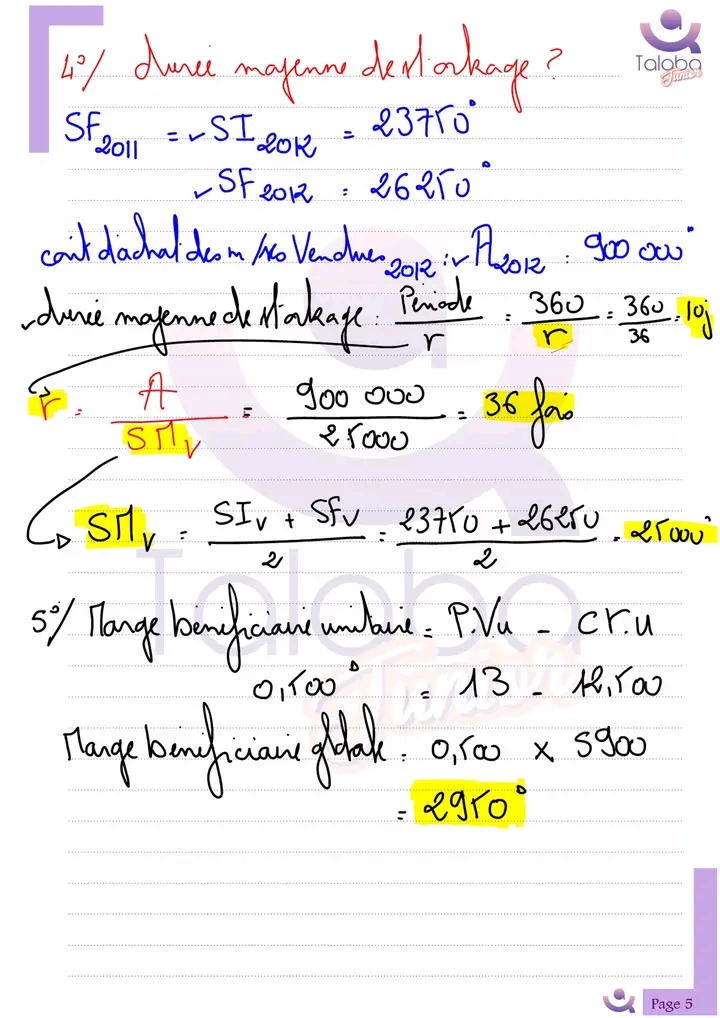 Taloba
Junior
4°/ durée moyenne de stockage ?
SF2011 = ✓ SI2012 = 23750°
✓ SF2012 = 26250°
coût d'achat des m/ses Vendues2012 : ✓ A2012 = 900 000°
✓ durée moyenne de stockage = Période / r = 360 / r = 360 / 36 = 10j
r = A / SMv = 900 000 / 25000 = 36 fois
SMv = SIv + SFv / 2 = 23750 + 26250 / 2 = 25000°
Taloba
Junior
5°/ Marge bénéficiaire unitaire = P.Vu - Cr.u
0,500° = 13 - 12,500
Marge bénéficiaire globale = 0,500 x 5900
= 2950°
Page 5